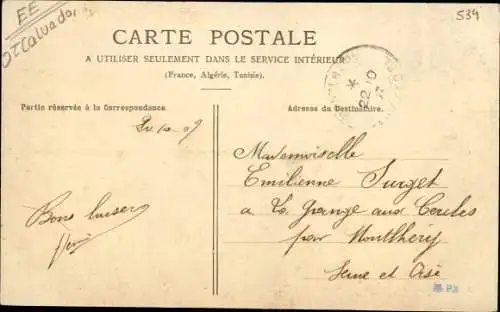 EE
OT Calvados
534
CARTE POSTALE
A UTILISER SEULEMENT DANS LE SERVICE INTÉRIEUR
(France, Algérie, Tunisie).
Partie réservée à la Correspondance
Adresse du Destinataire.
22 10
Mademoiselle
Emilienne Surget
a La Grange aux Cercles
par Montlhéry
Seine et Oise
Bons baisers